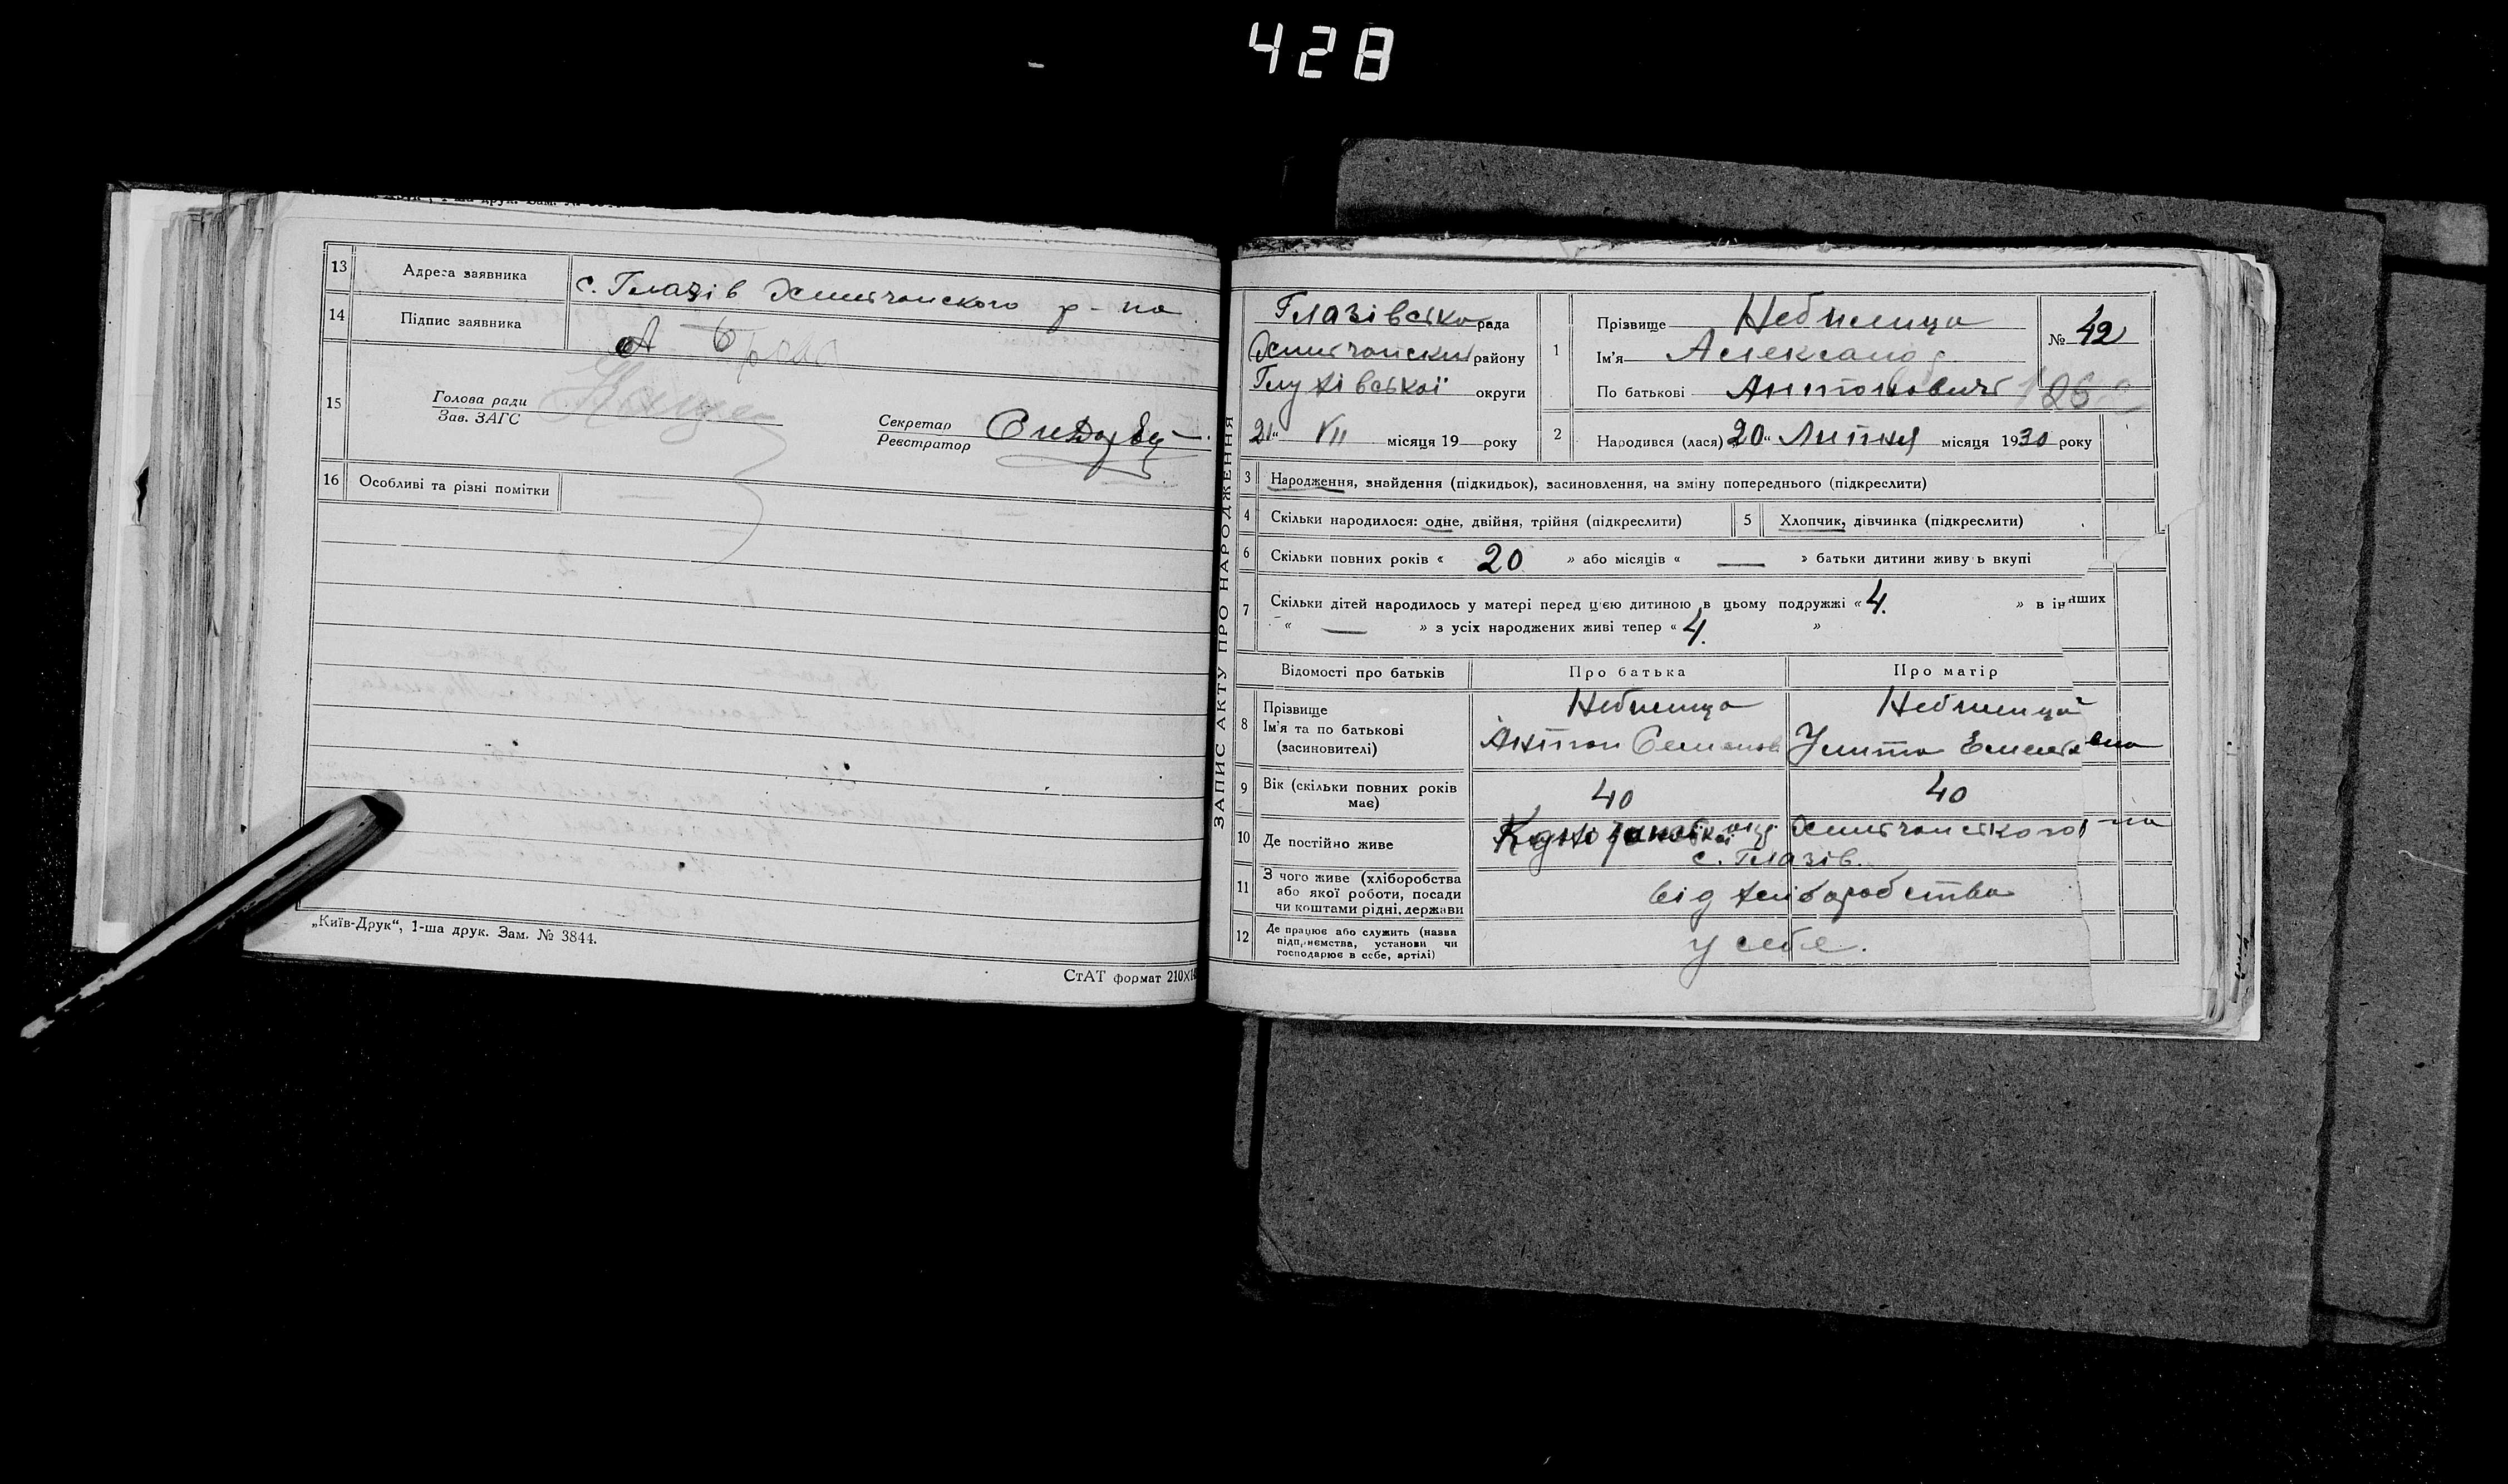 428
13 Адреса заявника с. Глазів Хмитчанского р-на
14 Підпис заявника А
15 Голова ради
Зав. ЗАГС
Секретар
Реєстратор
16 Особливі та різні помітки —
„Київ-Друк“, 1-ша друк. Зам. № 3844.
СтАТ формат 210×1
ЗАПИС АКТУ ПРО НАРОДЖЕННЯ
Глазівська рада
району
Глухівської округи
21 “ VII місяця 19 року
1 Прізвище Небилица
Ім'я Александр
По батькові Антонович
№ 42
126
2 Народився (лася) 20 “ Липня місяця 1930 року
3 Народження, знайдення (підкидьок), засиновлення, на зміну попереднього (підкреслити)
4 Скільки народилося: одне, двійня, трійня (підкреслити) 5 Хлопчик, дівчинка (підкреслити)
6 Скільки повних років « 20 » або місяців « — » батьки дитини живу ь вкупі
7 Скільки дітей народилось у матері перед цією дитиною в цьому подружжі « 4. » в інших
« — » з усіх народжених живі тепер « 4. »
Відомості про батьків Про батька Про матір
8 Прізвище Небилица Небилица
Ім'я та по батькові Антон Семенов Улита
(засиновителі)
9 Вік (скільки повних років має) 40 40
10 Де постійно живе р-на
с. Глазів.
11 З чого живе (хліборобства
або якої роботи, посади від хліборобства
чи коштами рідні, держави
12 Де працює або служить (назва
підприємства, установи чи у себе.
господарює в себе, артілі)